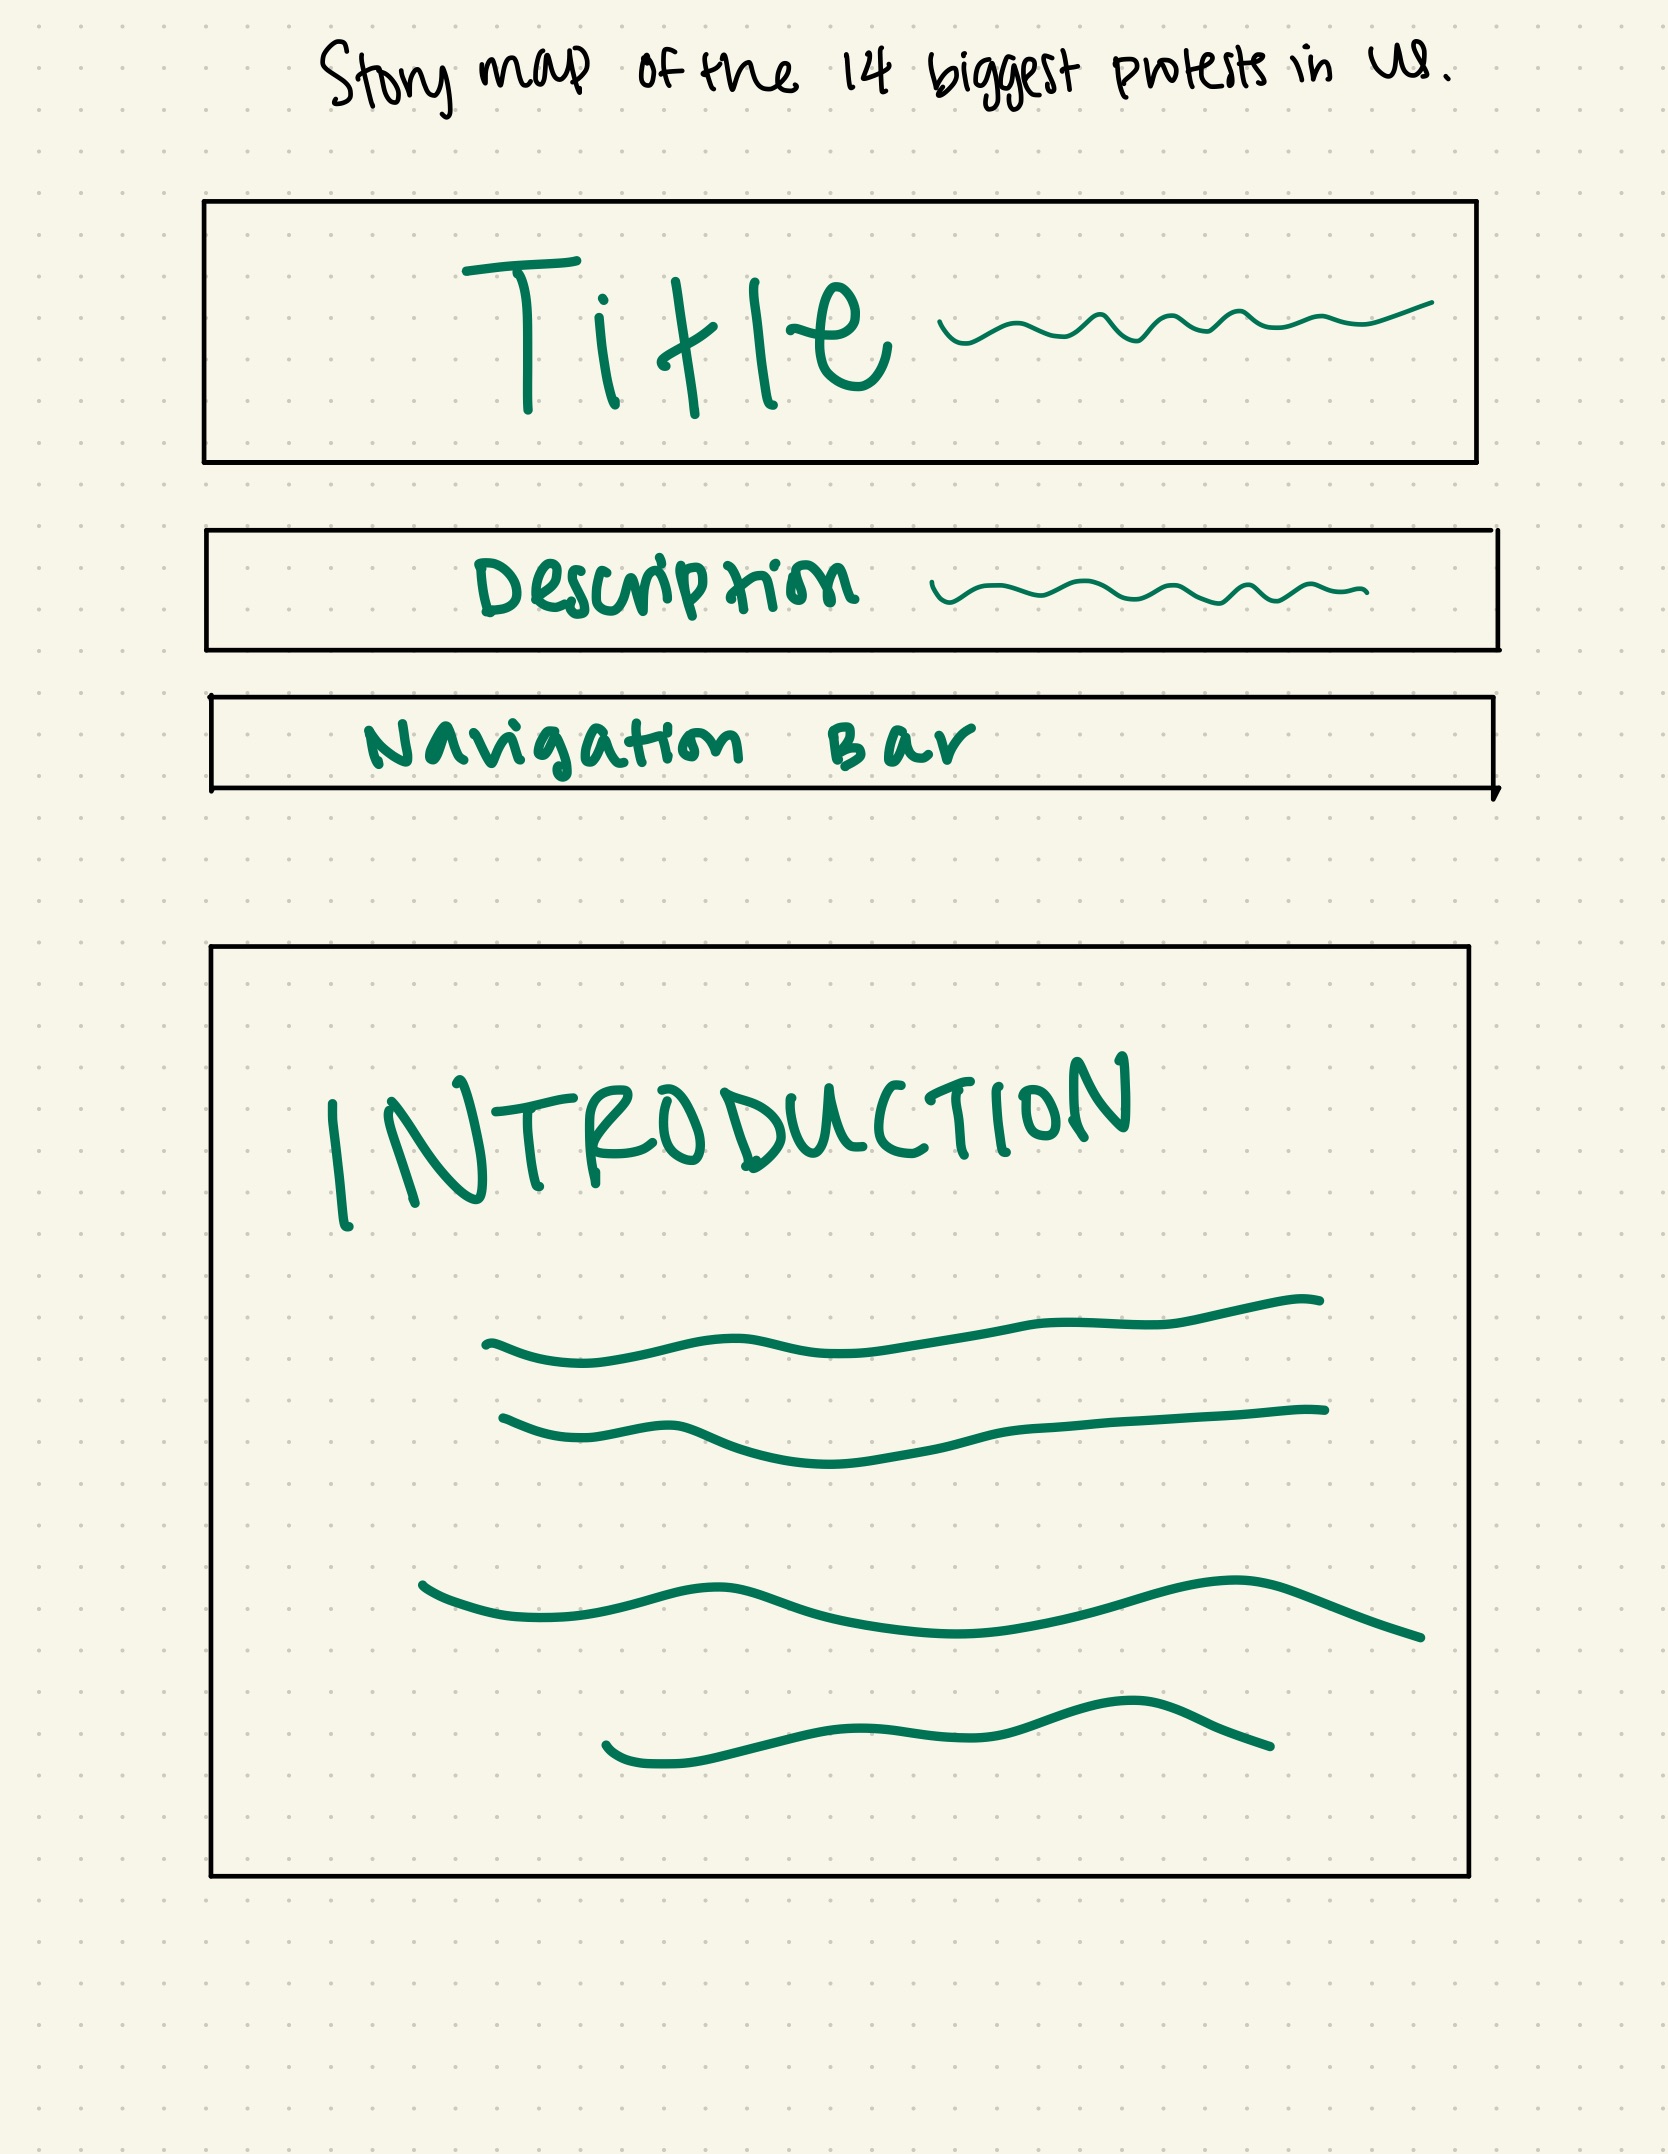 Story map of the 14 biggest protests in US.
Title
Description
Navigation Bar
INTRODUCTION